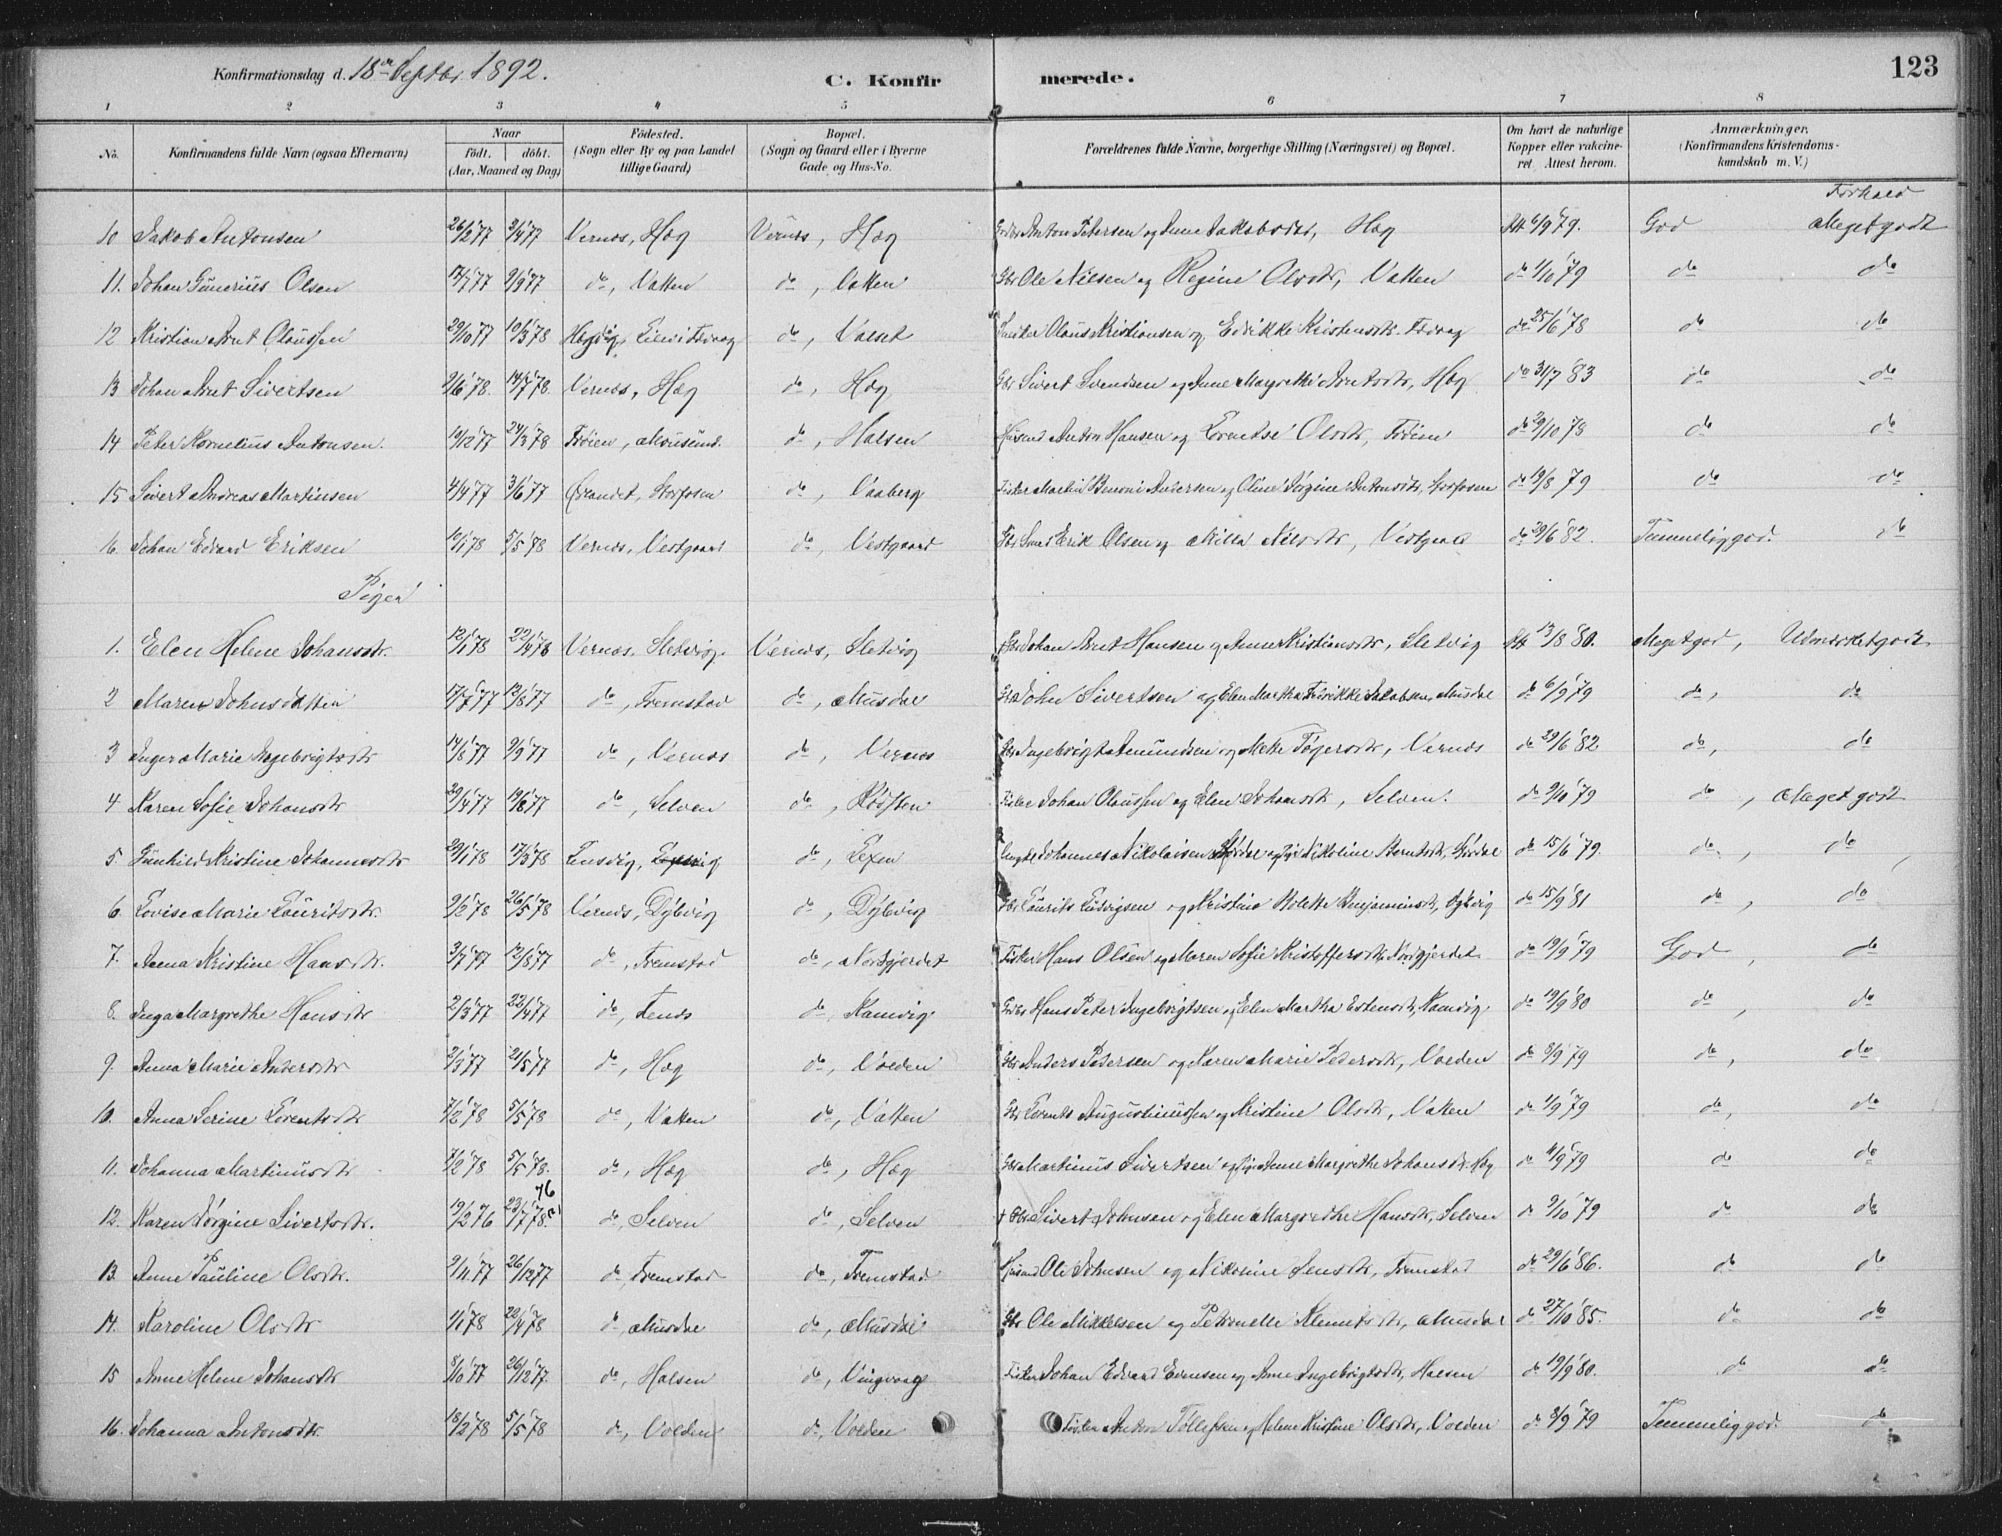 Konfirmationsdag d. 18de Septbr 1892.
C. Konfirmerede.
123
1 2 3 4 5 6 7 8
No.
Konfirmandens fulde Navn (ogsaa Efternavn)
Naar
födt. döbt.
(Aar, Maaned og Dag)
Födested.
(Sogn eller By og paa Landet tillige Gaard)
Bopæl.
(Sogn og Gaard eller i Byerne Gade og Hus-No.
Forældrenes fulde Navne, borgerlige Stilling (Næringsvei) og Bopæl.
Om havt de naturlige Kopper eller vakcineret. Attest herom.
Anmærkninger.
(Konfirmandens Kristendomskundskab m. V.)
Forhold
10 Jakob Antonsen 26/2 77 2/4 77 Vernæs, Hæg Vernæs, Hæg Anton Petersen og Anne Jakobsdtr, Hæg Att 6/9 79. God Meget godt
11. Johan Gunerius Olsen 17/7 77 9/9 77 do, Vatten do, Vatten Gbr Ole Nilsen og Regine Olsdtr, Vatten do 1/10 79 do do
12 Kristian Arnt Olaussen 29/10 77 10/3 78 do, Valset Olaus Kristiansen og Edrikke Kristensdtr. do 25/6 78 do do
13 Johan Arnt Sivertsen 9/6 78. 14/7 78. Vernæs, Hæg do, Hæg Gbr Sivert Svendsen og Anne Margrethe Arntsdtr, Hæg do 31/7 83 do do
14 Peter Kornelius Antonsen. 19/12 77 24/3 78 Frøien, Mausund. do, Halsen Husmd Anton Hansen og Lorentse Olsdtr, Frøien do 29/10 78 do do
15 Sivert Andreas Martinsen 4/4 77 3/6 77 Ørlandet, Storfosen do, Vaaberg Fisker Martin Benoni Andersen og Oline Jørgine Antonsdtr, Storfosen do 19/8 79 do do
16. Johan Edvard Eriksen 10/1 78 5/5 78 Vernæs, Vestgaard do, Vestgaard Erik Olsen og Milla Nilsdtr, Vestgaard do 29/6 82. Temmelig god. do
Piger
1. Elen Helene Johansdtr. 12/1 78 22/4 78 Vernæs, Sletvig. Vernæs, Sletvig Gbr Johan Arnt Hansen og Anne Kristiansdtr, Sletvig Att 13/8 80. Meget god, Udmærket godt
2 Maren Johnsdatter 17/7 77 12/8 77 do, Fremstad do, Musdal Gbr John Sivertsen og Elen Martha Fredrikke Jakobsen, Musdal do 6/9 79 do, do
3 Inger Marie Ingebrigtsdtr 14/8 77 9/9 77 do, Vernæs do, Vernæs Gbr Ingebrigt Amundsen og Mette Tøgersdtr, Vernæs do 29/6 82 do, do
4 Karen Sofie Johansdtr 29/4 77 19/8 77 do, Selven do, Røsten Fisker Johan Olaussen og Elen Johansdtr, Selven. do 9/10 79 do, Meget godt
5. Gunhild Kristine Johannesdtr 29/1 78 17/3 78 Lensvig, do, Lexen Ungkl Johannes Nikolaisen Skjørdal og Pige Nikoline Berntsdtr, Skjørdal do 15/6 79. do, do
6. Lovise Marie Lauritsdtr. 9/2 78 26/5 78 Vernæs, Dybvig do, Dybvig Gbr Laurits Ludvigsen og Kristine Bolette Benjaminsdtr, Dybvig do 15/9 81 do, do
7. Anna Kristine Hansdtr. 3/7 77 12/8 77 do, Fremstad do, Nordgjerdet Fisker Hans Olsen og Maren Sofie Kristoffersdtr, Nordgjerdet do 19/9 79 God, do
8. Inga Margrethe Hansdtr 2/3 77 22/4 77 do, Lenæs do, Kamvig. Hans Peter Ingebrigtsen og Elen Martha Estensdtr, Kamvig. do 19/9 80 do, do
9. Anna Marie Andersdtr 2/3 77 21/5 77 do, Hæg do, Volden Gbr Anders Pedersen og Karen Marie Pedersdtr, Volden do 8/9 79 do, do
10. Anna Serine Lorentsdtr 7/2 78 5/5 78 do, Vatten do, Vatten Gbr Lorents Augustinussen og Kristine Olsdtr, Vatten do 1/9 79 do, do
11. Johanna Martinusdtr 7/2 78 5/5 78. do, Hæg do, Hæg Gbr Martinus Sivertsen og Pige Anne Margrethe Johansdtr. Hæg do 4/9 79 do do
12. Karen Jørgine Sivertsdtr. 19/2 76 23/7 78 76 do, Selven do, Selven + Gbr Sivert Johnsen og Elen Margrethe Hansdtr, Selven do 9/10 79 do do
13. Anne Pauline Olsdtr. 9/11 77 26/12 77 do, Fremstad do, Fremstad Husmd Ole Johnsen og Nikoline Jensdtr, Fremstad do 29/6 86. do do
14. Karoline Olsdtr 1/1 78 22/4 78 do, Musdal do, Musdal Gbr Ole Mikkelsen og Petronelle Klemetsdtr, Musdal do 27/10 85. do do
15 Anne Helene Johansdtr 8/10 77 26/12 77. do, Halsen do, Vingvaag Fisker Johan Edvard Evensen og Anne Ingebrigtsdtr, Halsen do 19/9 80. do do
16. Johanna Antonsdtr. 18/2 78 5/5 78 do, Volden do, Volden Fisker Anton Tollefsen og Helene Kristine Olsdtr, Volden do 8/9 79 Temmelig god. do